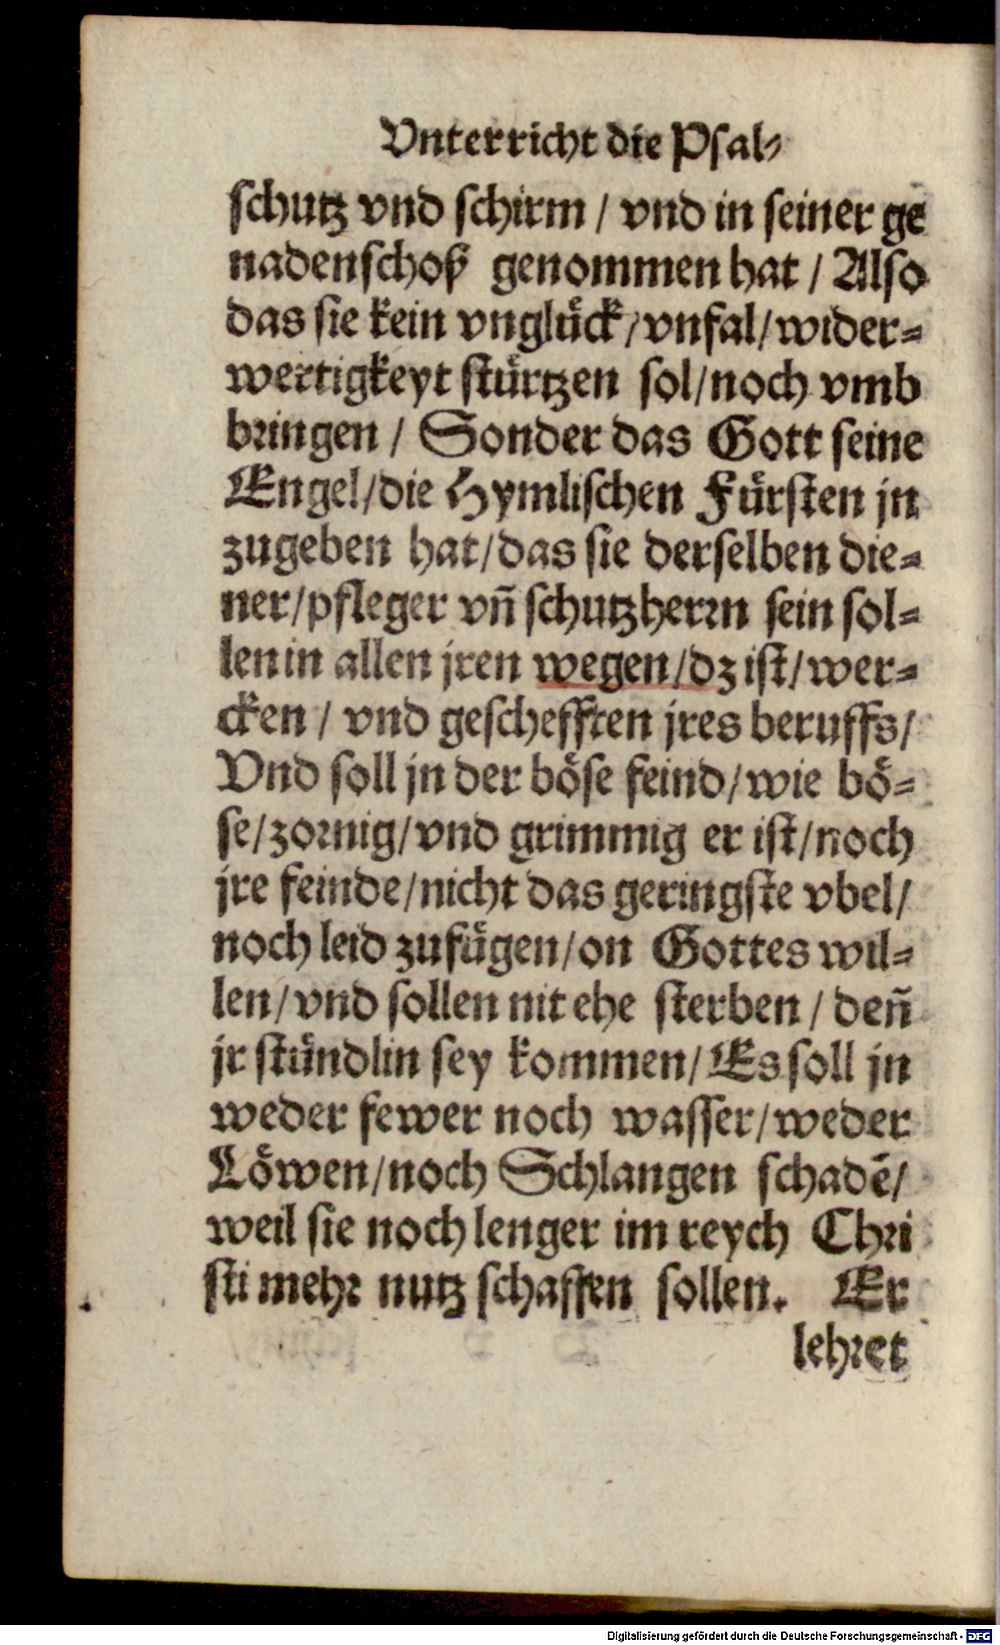 Vnterricht die Psal⸗
schutz vnd schirm / vnd in seiner ge
nadenschoß genommen hat / Also
das sie kein vnglück / vnfal / wider⸗
wertigkeyt stürtzen sol / noch vmb
bringen / Sonder das Gott seine
Engel / die Hymlischen Fürsten jn
zugeben hat / das sie derselben die⸗
ner / pfleger vñ schutzherrn sein sol⸗
len in allen jren wegen / dz ist / wer⸗
cken / vnd geschefften jres beruffs /
Vnd soll jn der böse feind / wie bö⸗
se / zornig / vnd grimmig er ist / noch
jre feinde / nicht das geringste vbel /
noch leid zufügen / on Gottes wil⸗
len / vnd sollen nit ehe sterben / deñ
jr stündlin sey kommen / Es soll jn
weder fewer noch wasser / weder
Löwen / noch Schlangen schadē /
weil sie noch lenger im reych Chri
sti mehr nutz schaffen sollen. Er
lehret
Digitalisierung gefördert durch die Deutsche Forschungsgemeinschaft - DFG